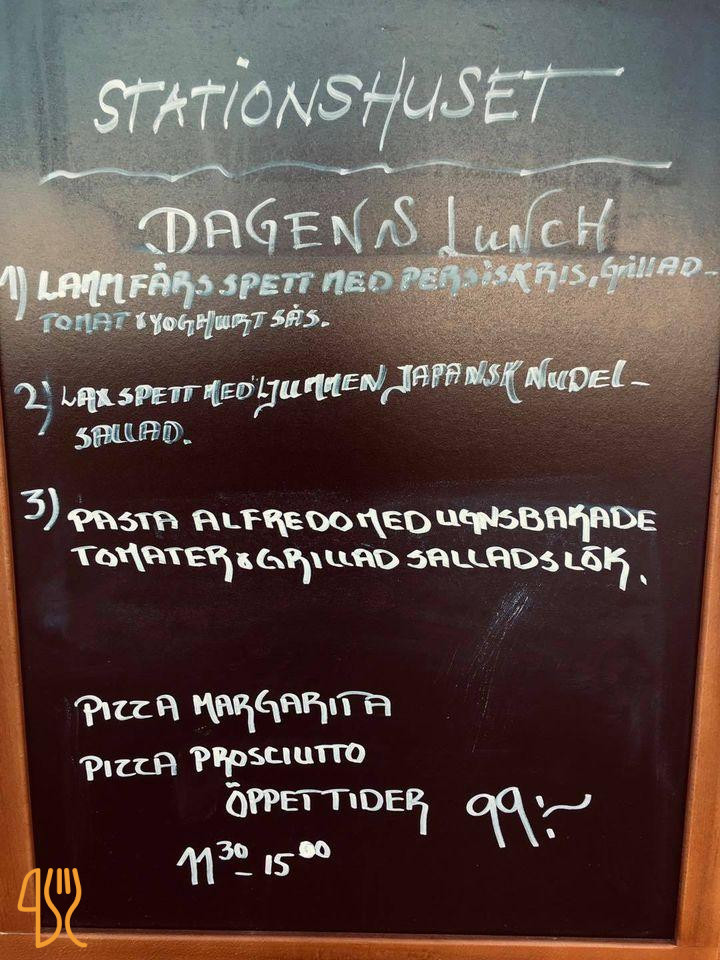 STATIONSHUSET
DAGENS LUNCH
1) LAMMFÄRSSPETT MED PERSISKRIS, GRILLAD-
TOMAT & YOGHURT SÅS.
2) LAXSPETT MED LJUMMEN JAPANSK NUDEL-
SALLAD.
3) PASTA ALFREDO MED UGNSBAKADE
TOMATER & GRILLAD SALLADSLÖK.
PIZZA MARGARITA
PIZZA PROSCIUTTO
ÖPPETTIDER 99:-
11 30 - 15 00